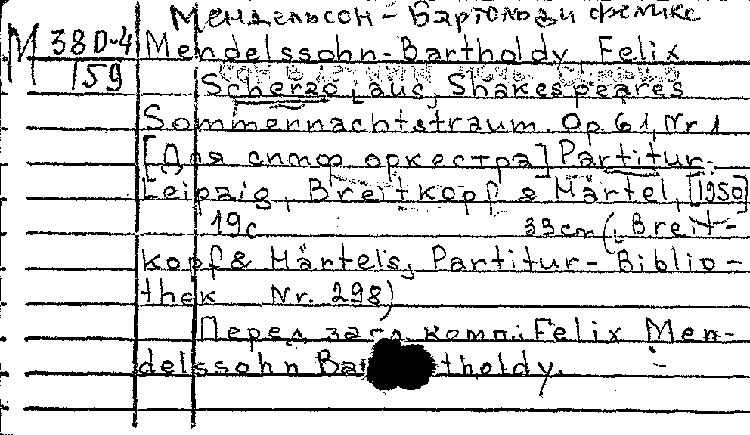 Мендельсон-Бартольди Феликс
М 38D-4
Mendelssohn-Bartholdy, Felix
159
Scherzo [aus] Shakespeares
Sommernachtstraum. Op 61, Nr 1
[Для симф оркестра] Partitur.
Leipzig, Breitkopf & Härtel, [1950]
19с 33cm (Breit-
kopf & Härtels, Partitur-Biblio-
thek Nr. 298)
Перед загл. комп: Felix Men-
delssohn Bartholdy.